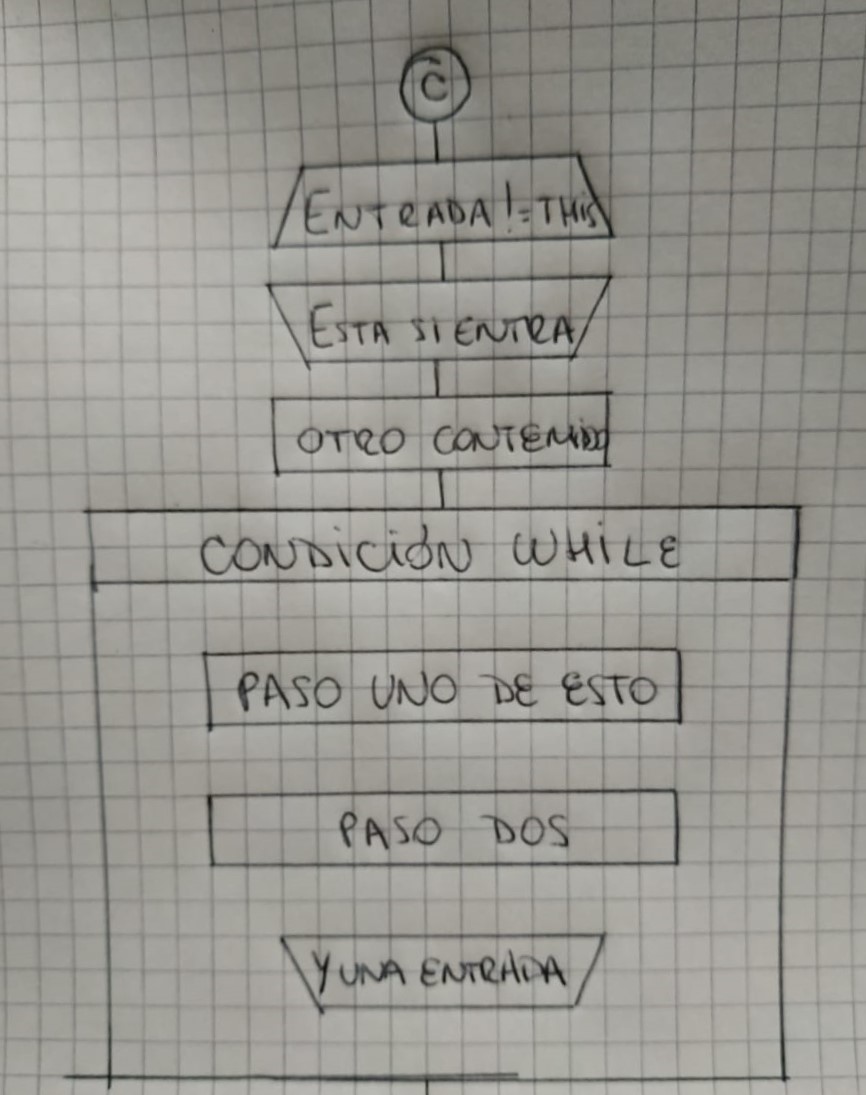 C
ENTRADA != THIS
ESTA SI ENTRA
OTRO CONTENIDO
CONDICIÓN WHILE
PASO UNO DE ESTO
PASO DOS
Y UNA ENTRADA